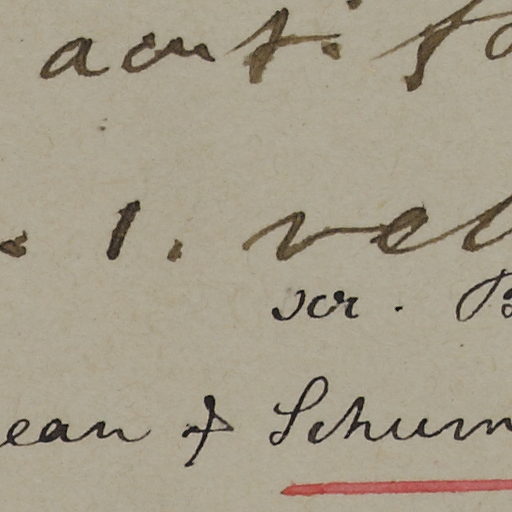 acut. f
. 1. vel
scr. B
ean & Schum